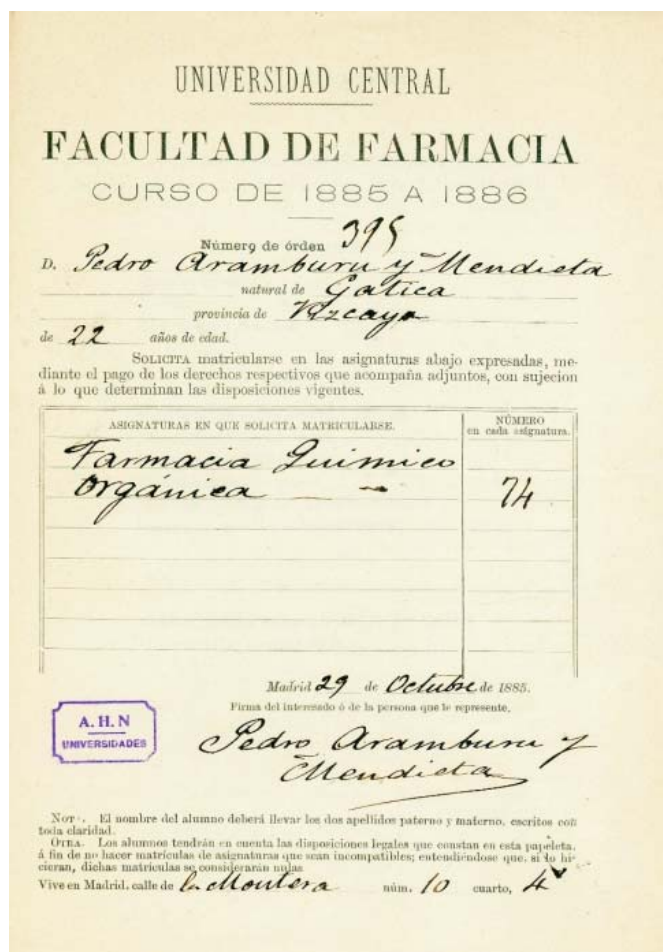 UNIVERSIDAD CENTRAL
FACULTAD DE FARMACIA
CURSO DE 1885 A 1886
Número de órden 395
D. Pedro Aramburu y Mendieta
natural de Gatica
provincia de Vizcaya
de 22 años de edad.
SOLICITA matricularse en las asignaturas abajo expresadas, me-
diante el pago de los derechos respectivos que acompaña adjuntos, con sujecion
á lo que determinan las disposiciones vigentes.
ASIGNATURAS EN QUE SOLICITA MATRICULARSE.
NÚMERO
en cada asignatura.
Farmacia Quimico
Orgánica — " 74
Madrid 29 de Octubre de 1885.
Firma del interesado ó de la persona que le represente,
A. H. N
UNIVERSIDADES
Pedro Aramburu y
Mendieta
NOT . El nombre del alumno deberá llevar los dos apellidos paterno y materno, escritos con
toda claridad.
OTRA. Los alumnos tendrán en cuenta las disposiciones legales que constan en esta papeleta,
á fin de no hacer matrículas de asignaturas que sean incompatibles; entendiéndose que, si lo hi-
cieran, dichas matrículas se considerarán nulas
Vive en Madrid, calle de la Montera núm. 10 cuarto, 4º